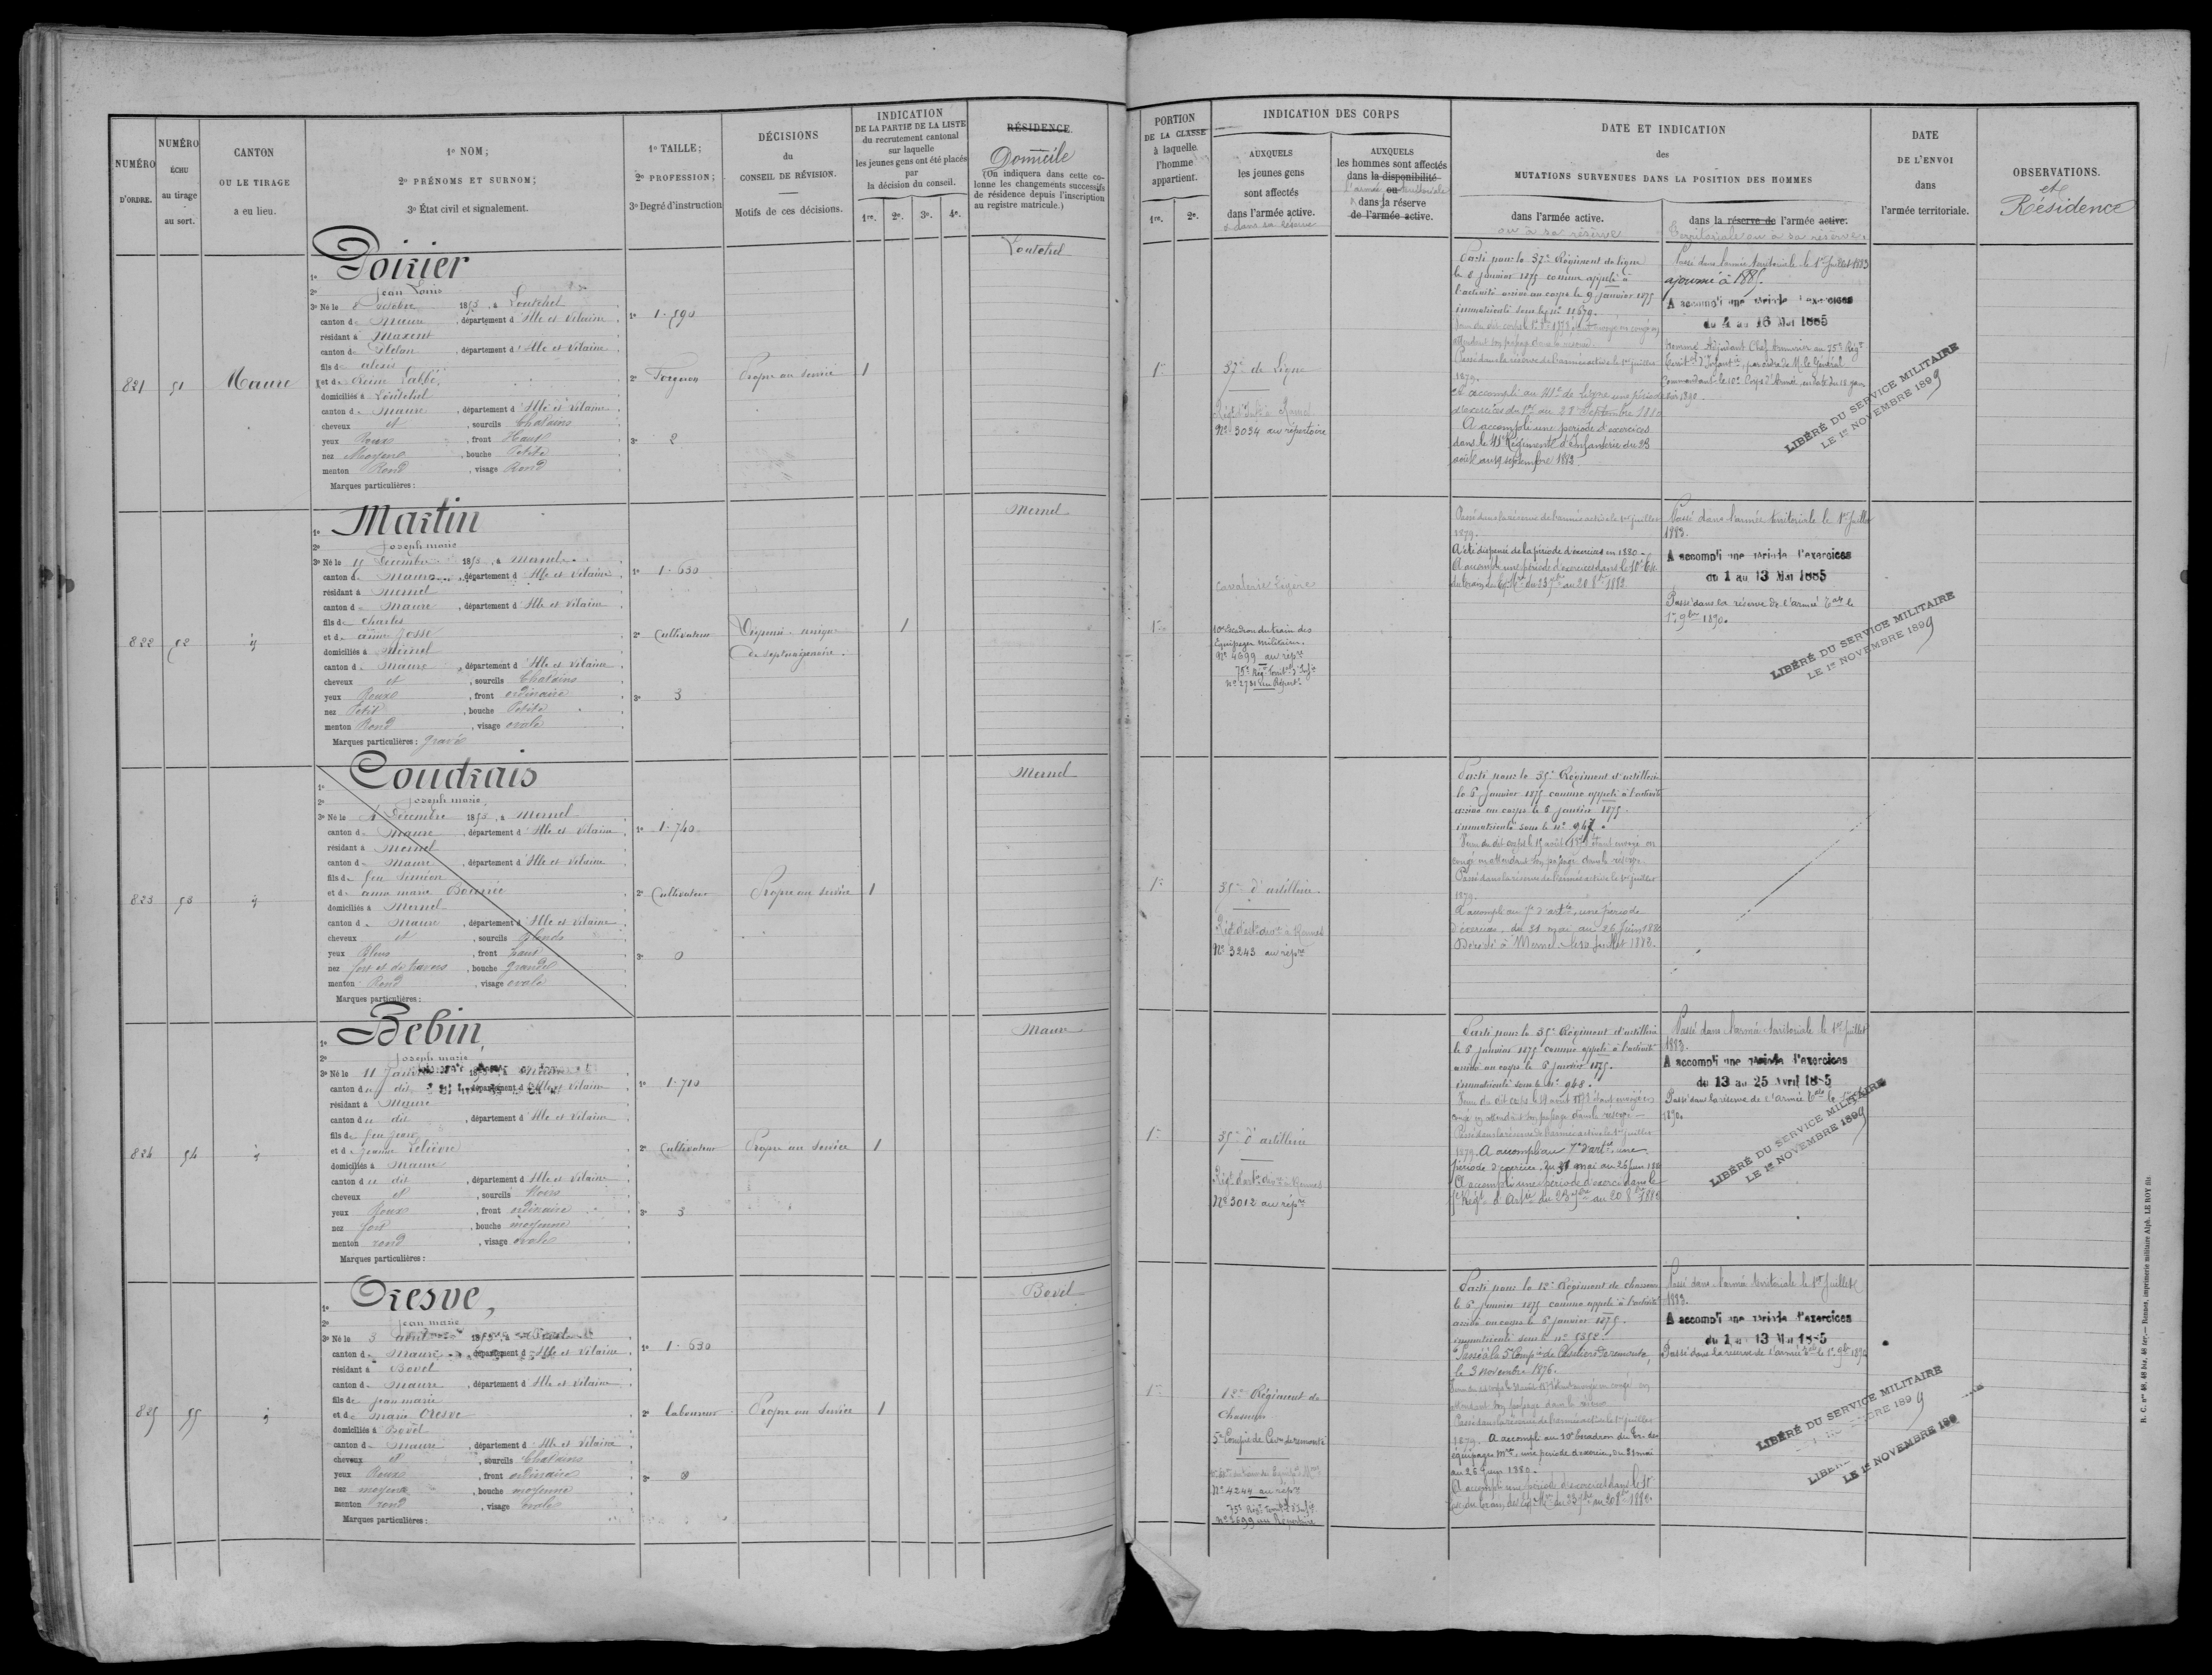 NUMÉRO
D'ORDRE.
NUMÉRO
ÉCHU
au tirage
au sort.
CANTON
OU LE TIRAGE
a eu lieu.
1º NOM;
2º PRÉNOMS ET SURNOM;
3º État civil et signalement.
1º TAILLE;
2º PROFESSION;
3º Degré d'instruction
DÉCISIONS
du
CONSEIL DE RÉVISION.
Motifs de ces décisions.
INDICATION
DE LA PARTIE DE LA LISTE
du recrutement cantonal
sur laquelle
les jeunes gens ont été placés
par
la décision du conseil.
1re. 2e. 3e. 4e.
RÉSIDENCE
Domicile
(On indiquera dans cette co-
lonne les changements successifs
de résidence depuis l'inscription
au registre matricule.)
PORTION
DE LA CLASSE
à laquelle
l'homme
appartient.
1re. 2e.
INDICATION DES CORPS
AUXQUELS
les jeunes gens
sont affectés
dans l'armée active.
& dans sa réserve
AUXQUELS
les hommes sont affectés
dans la disponibilité
l'armée ou territoriale
dans la réserve
de l'armée active.
DATE ET INDICATION
des
MUTATIONS SURVENUES DANS LA POSITION DES HOMMES
dans l'armée active.
ou à sa réserve
dans la réserve de l'armée active.
Territoriale ou à sa réserve.
DATE
DE L'ENVOI
dans
l'armée territoriale.
OBSERVATIONS.
et
Résidence
821
51
Maure
1º Poirier
2º Jean Louis
3º Né le 8 octobre 1853, à Loutehel
canton de Maure, département d'Ille et Vilaine
résidant à Maxent
canton de Plélan, département d'Ille et Vilaine
fils de alexis
et de Reine Labbé
domiciliés à Loutehel
canton de Maure, département d'Ille et Vilaine
cheveux et, sourcils Chatains
yeux Roux, front Haut
nez Moyen, bouche Petite
menton Rond, visage Rond
Marques particulières:
1º 1.590
2º Forgeron
3º 2
Propre au service
1
Loutehel
1re
37e de Ligne
Nº 3034 au répertoire
Parti pour le 37e Régiment de ligne
le 6 janvier 1875 comme appelé à
l'activité arrivé au corps le 9 janvier 1875
immatriculé sous le nº 11679.
Passé dans la réserve de l'armée active le 1er juillet
1879.
A accompli au 41e de ligne une période
d'exercices du 1er au 28 Septembre 1880
A accompli une période d'exercices
dans le 41e Régiment d'Infanterie du 23
août au 19 septembre 1882
Passé dans l'armée territoriale le 1er Juillet 1883
ajourné à 1885.
A accompli une période d'exercices
du 4 au 16 Mai 1885
Nommé Adjudant Chef Armurier au 75e Régt
Territal d'Infante, par ordre de M. le Général
Commandant le 10e Corps d'Armée, en date du 18 jan
vier 1890.
LIBÉRÉ DU SERVICE MILITAIRE
LE 1er NOVEMBRE 1899
822
52
id
1º Martin
2º Joseph marie
3º Né le 15 Décembre 1853, à Mernel
canton de Maure, département d'Ille et Vilaine
résidant à Mernel
canton de Maure, département d'Ille et Vilaine
fils de Charles
et de anne Josse
domiciliés à Mernel
canton de Maure, département d'Ille et Vilaine
cheveux et, sourcils Chatains
yeux Roux, front ordinaire
nez Petit, bouche Petite
menton Rond, visage ovale
Marques particulières: gravé
1º 1.630
2º Cultivateur
3º 3
Dispensé. unique
de septuagénaire.
1
Mernel
1re
Cavalerie Légère
10e Escadron du train des
Equipages militaires.
Nº 4699 au répre
75e Régt Territal d'Infie
Passé dans la réserve de l'armée active le 1er juillet
1879.
A été dispensé de la période d'exercices en 1880
A accompli une période d'exercices dans le 10e Esc.
Passé dans l'armée territoriale le 1er Juillet
1883.
A accompli une période d'exercices
du 1 au 13 Mai 1885
Passé dans la réserve de l'armée Tale le
1er 9bre 1890.
LIBÉRÉ DU SERVICE MILITAIRE
LE 1er NOVEMBRE 1899
823
53
id
1º Coudrais
2º Joseph marie,
3º Né le 4 Décembre 1853, à Mernel
canton de Maure, département d'Ille et Vilaine
résidant à Mernel
canton de Maure, département d'Ille et Vilaine
fils de feu Siméon
et de anne marie
domiciliés à Mernel
canton de Maure, département d'Ille et Vilaine
cheveux et, sourcils Blonds
yeux Bleus, front haut
nez fort et de travers, bouche grande
menton Rond, visage ovale
Marques particulières:
1º 1.740
2º Cultivateur
3º 0
Propre au service
1
Mernel
1re
35e d'artillerie
Nº 3243 au répre
Parti pour le 35e Régiment d'artillerie
le 6 janvier 1875 comme appelé à l'activité
arrivé au corps le 6 janvier 1875.
immatriculé sous le nº 947.
Passé dans la réserve de l'armée active le 1er juillet
1879.
A accompli au 7e d'artie, une période
d'exercices, du 31 mai au 26 Juin 1880
Décédé à Mernel
824
54
id
1º Bebin,
2º Joseph marie
3º Né le 11 janvier 1853, à Maure
canton du dit, département d'Ille et Vilaine
résidant à Maure
canton du dit, département d'Ille et Vilaine
fils de feu jean
et de jeanne Lelièvre
domiciliés à Maure
canton du dit, département d'Ille et Vilaine
cheveux et, sourcils Noirs
yeux Roux, front ordinaire
nez fort, bouche moyenne
menton rond, visage ovale
Marques particulières:
1º 1.710
2º Cultivateur
3º 3
Propre au service
1
Maure
1re
35e d'artillerie
Nº 3012 au répre
Parti pour le 35e Régiment d'artillerie
le 6 janvier 1875 comme appelé à l'activité
arrivé au corps le 6 janvier 1875.
immatriculé sous le nº 948.
Passé dans la réserve de l'armée active le 1er juillet
1879. A accompli au 7e d'artie, une
période d'exercices, du 31 mai au 26 Juin 1880
A accompli une période d'exerces dans le
Passé dans l'armée territoriale le 1er Juillet
1883.
A accompli une période d'exercices
du 13 au 25 Avril 1885
Passé dans la réserve de l'armée Tale le
1890
LIBÉRÉ DU SERVICE MILITAIRE
LE 1er NOVEMBRE 1899
825
55
id
1º Oresve,
2º jean marie
3º Né le 3 avril 1853, à
canton de Maure, département d'Ille et Vilaine
résidant à Bovel
canton de Maure, département d'Ille et Vilaine
fils de jean marie
et de marie Oresve
domiciliés à Bovel
canton de Maure, département d'Ille et Vilaine
cheveux et, sourcils Chatains
yeux Roux, front ordinaire
nez moyen, bouche moyenne
menton rond, visage ovale
Marques particulières:
1º 1.630
2º laboureur
3º 0
Propre au service
1
Bovel
1re
12e Régiment de
Chasseurs
5e Compie de Cavrs de remonte
Nº 4244 au répre
75e Régt Territal d'Infie
nº 2699 au Répertoire
Parti pour le 12e Régiment de chasseurs
le 6 janvier 1875 comme appelé à l'activité
arrivé au corps le 6 janvier 1875.
Passé à la 5e Compie de Cavaliers de remonte,
le 3 novembre 1876.
Passé dans la réserve de l'armée active le 1er juillet
1879. A accompli au 10e Escadron du Tr. des
équipages mres, une période d'exercices, du 31 mai
au 26 Juin 1880.
Passé dans l'armée territoriale le 1er Juillet
1883.
A accompli une période d'exercices
du 1 au 13 Mai 1885
Passé dans la réserve de l'armée Tale le 1er 9bre 1890
LIBÉRÉ DU SERVICE MILITAIRE
LE 1er NOVEMBRE 189
R. C. nos 48, 48 bis, 48 ter.— Rennes, imprimerie militaire Alph. LE ROY fils